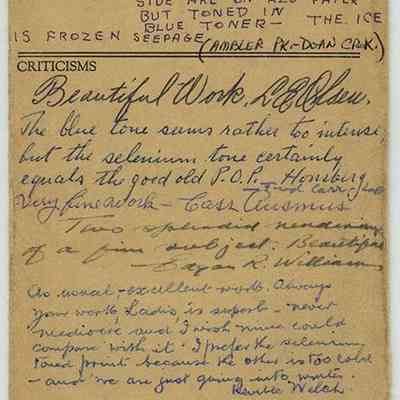 SIDE ARE ON AZO PAPER
BUT TONED IN
BLUE TONER — THE ICE
IS FROZEN SEEPAGE (AMBLER PK.-DOAN CRK.)
CRITICISMS
Beautiful Work. L E Olsen.
The blue tone seems rather too intense,
but the selenium tone certainly
equals the good old P.O.P.
Very fine work — Cass Ausmus
Two splendid renderings
of a fine subject. Beautiful
— Edgar R. Williams
As usual, - excellent work. Always
your work Ladis, is superb - never
mediocre and I wish mine could
compare with it. I prefer the selenium
toned print because the other is too cold
- and we are just going into winter.
Welch